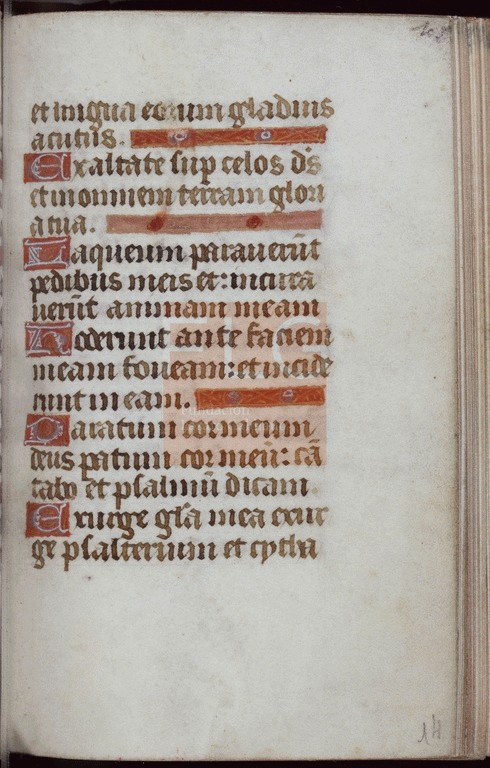 et lingua eorum gladius
acutus.
Exaltate sup celos ds
et in omnem terram glori
a tua.
Laqueum parauerūt
pedibus meis et: incurua
uerūt animam meam
Foderunt ante faciem
meam foueam: et incide
runt in eam.
Paratum cor meum
deus patum cor meū: cā
tabo et psalmū dicam.
Exurge gl̄a mea exur
ge psalterium et cytha
Fundación
14